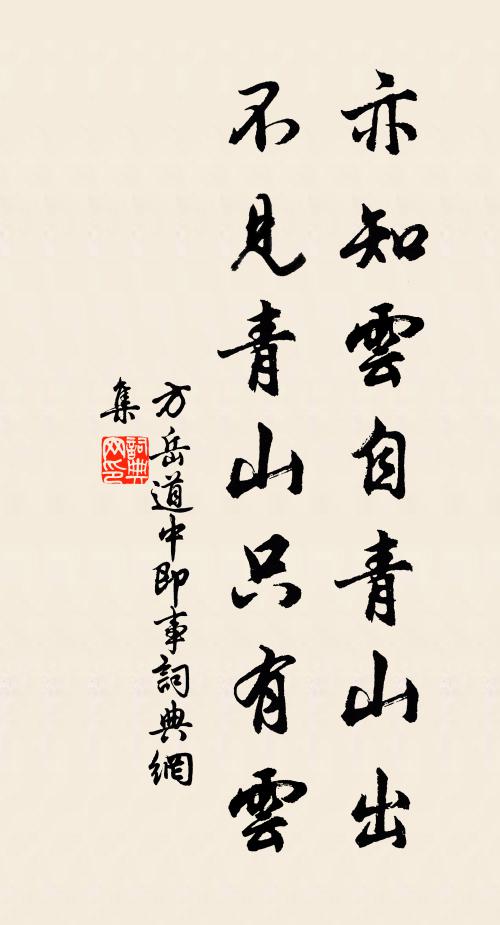 亦知雲自青山出
不見青山只有雲
方岳道中即事詞典網
集
詞典網印